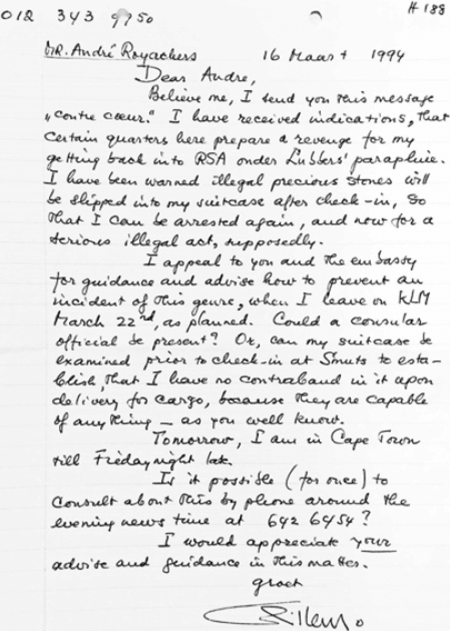 012 343 9750 # 188
DR. André Royachers 16 Maart 1994
Dear Andre,
Believe me, I send you this message
„contre cœur." I have received indications, that
certain quarters here prepare a revenge for my
getting back into RSA onder Lubbers' parapluie.
I have been warned illegal precious stones will
be slipped into my suitcase after check-in, so
that I can be arrested again, and now for a
serious illegal act, supposedly.
I appeal to you and the embassy
for guidance and advise how to prevent an
incident of this genre, when I leave on KLM
March 22nd, as planned. Could a consular
official be present? Or, can my suitcase be
examined prior to check-in at Smuts to esta-
blish, that I have no contraband in it upon
delivery for cargo, because they are capable
of anything — as you well know.
Tomorrow, I am in Cape Town
till Friday night late.
Is it possible (for once) to
consult about this by phone around the
evening news time at 642 6454?
I would appreciate your
advise and guidance in this matter.
groet